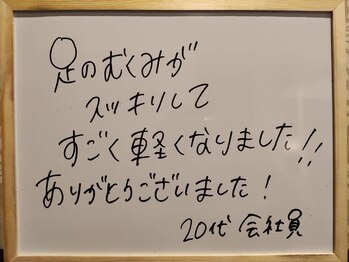 足のむくみが
スッキリして
すごく軽くなりました!!
ありがとうございました!
20代 会社員